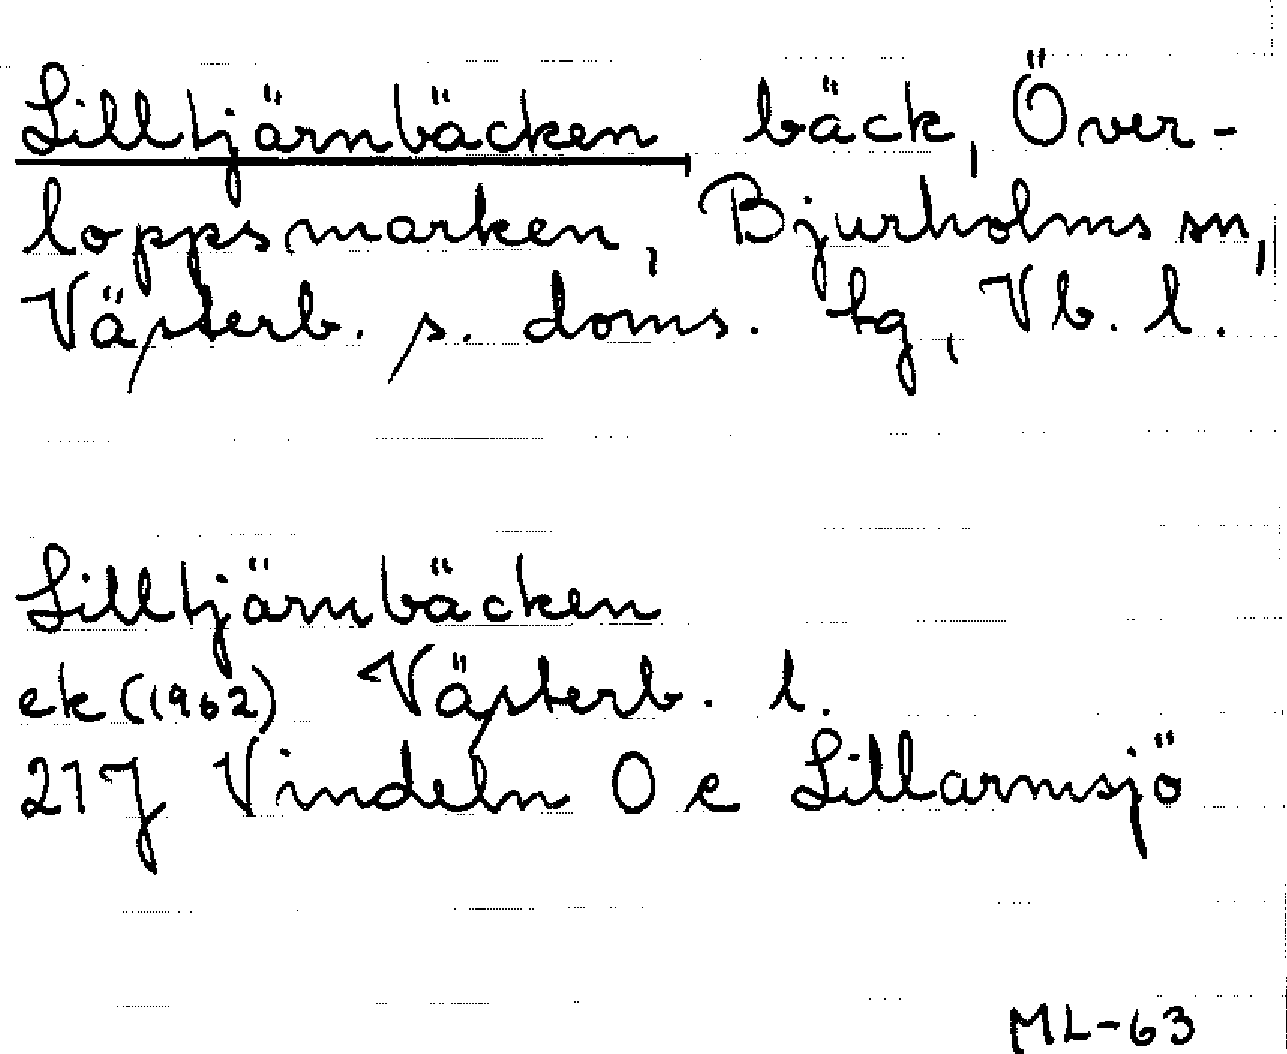 Lilltjärnbäcken, bäck, Över-
loppsmarken, Bjurholms sn,
Västerb. s. doms. tg, Vb. l.
Lilltjärnbäcken
ek (1962) Västerb. l.
21J Vindeln 0 e Lillarmsjö
ML-63